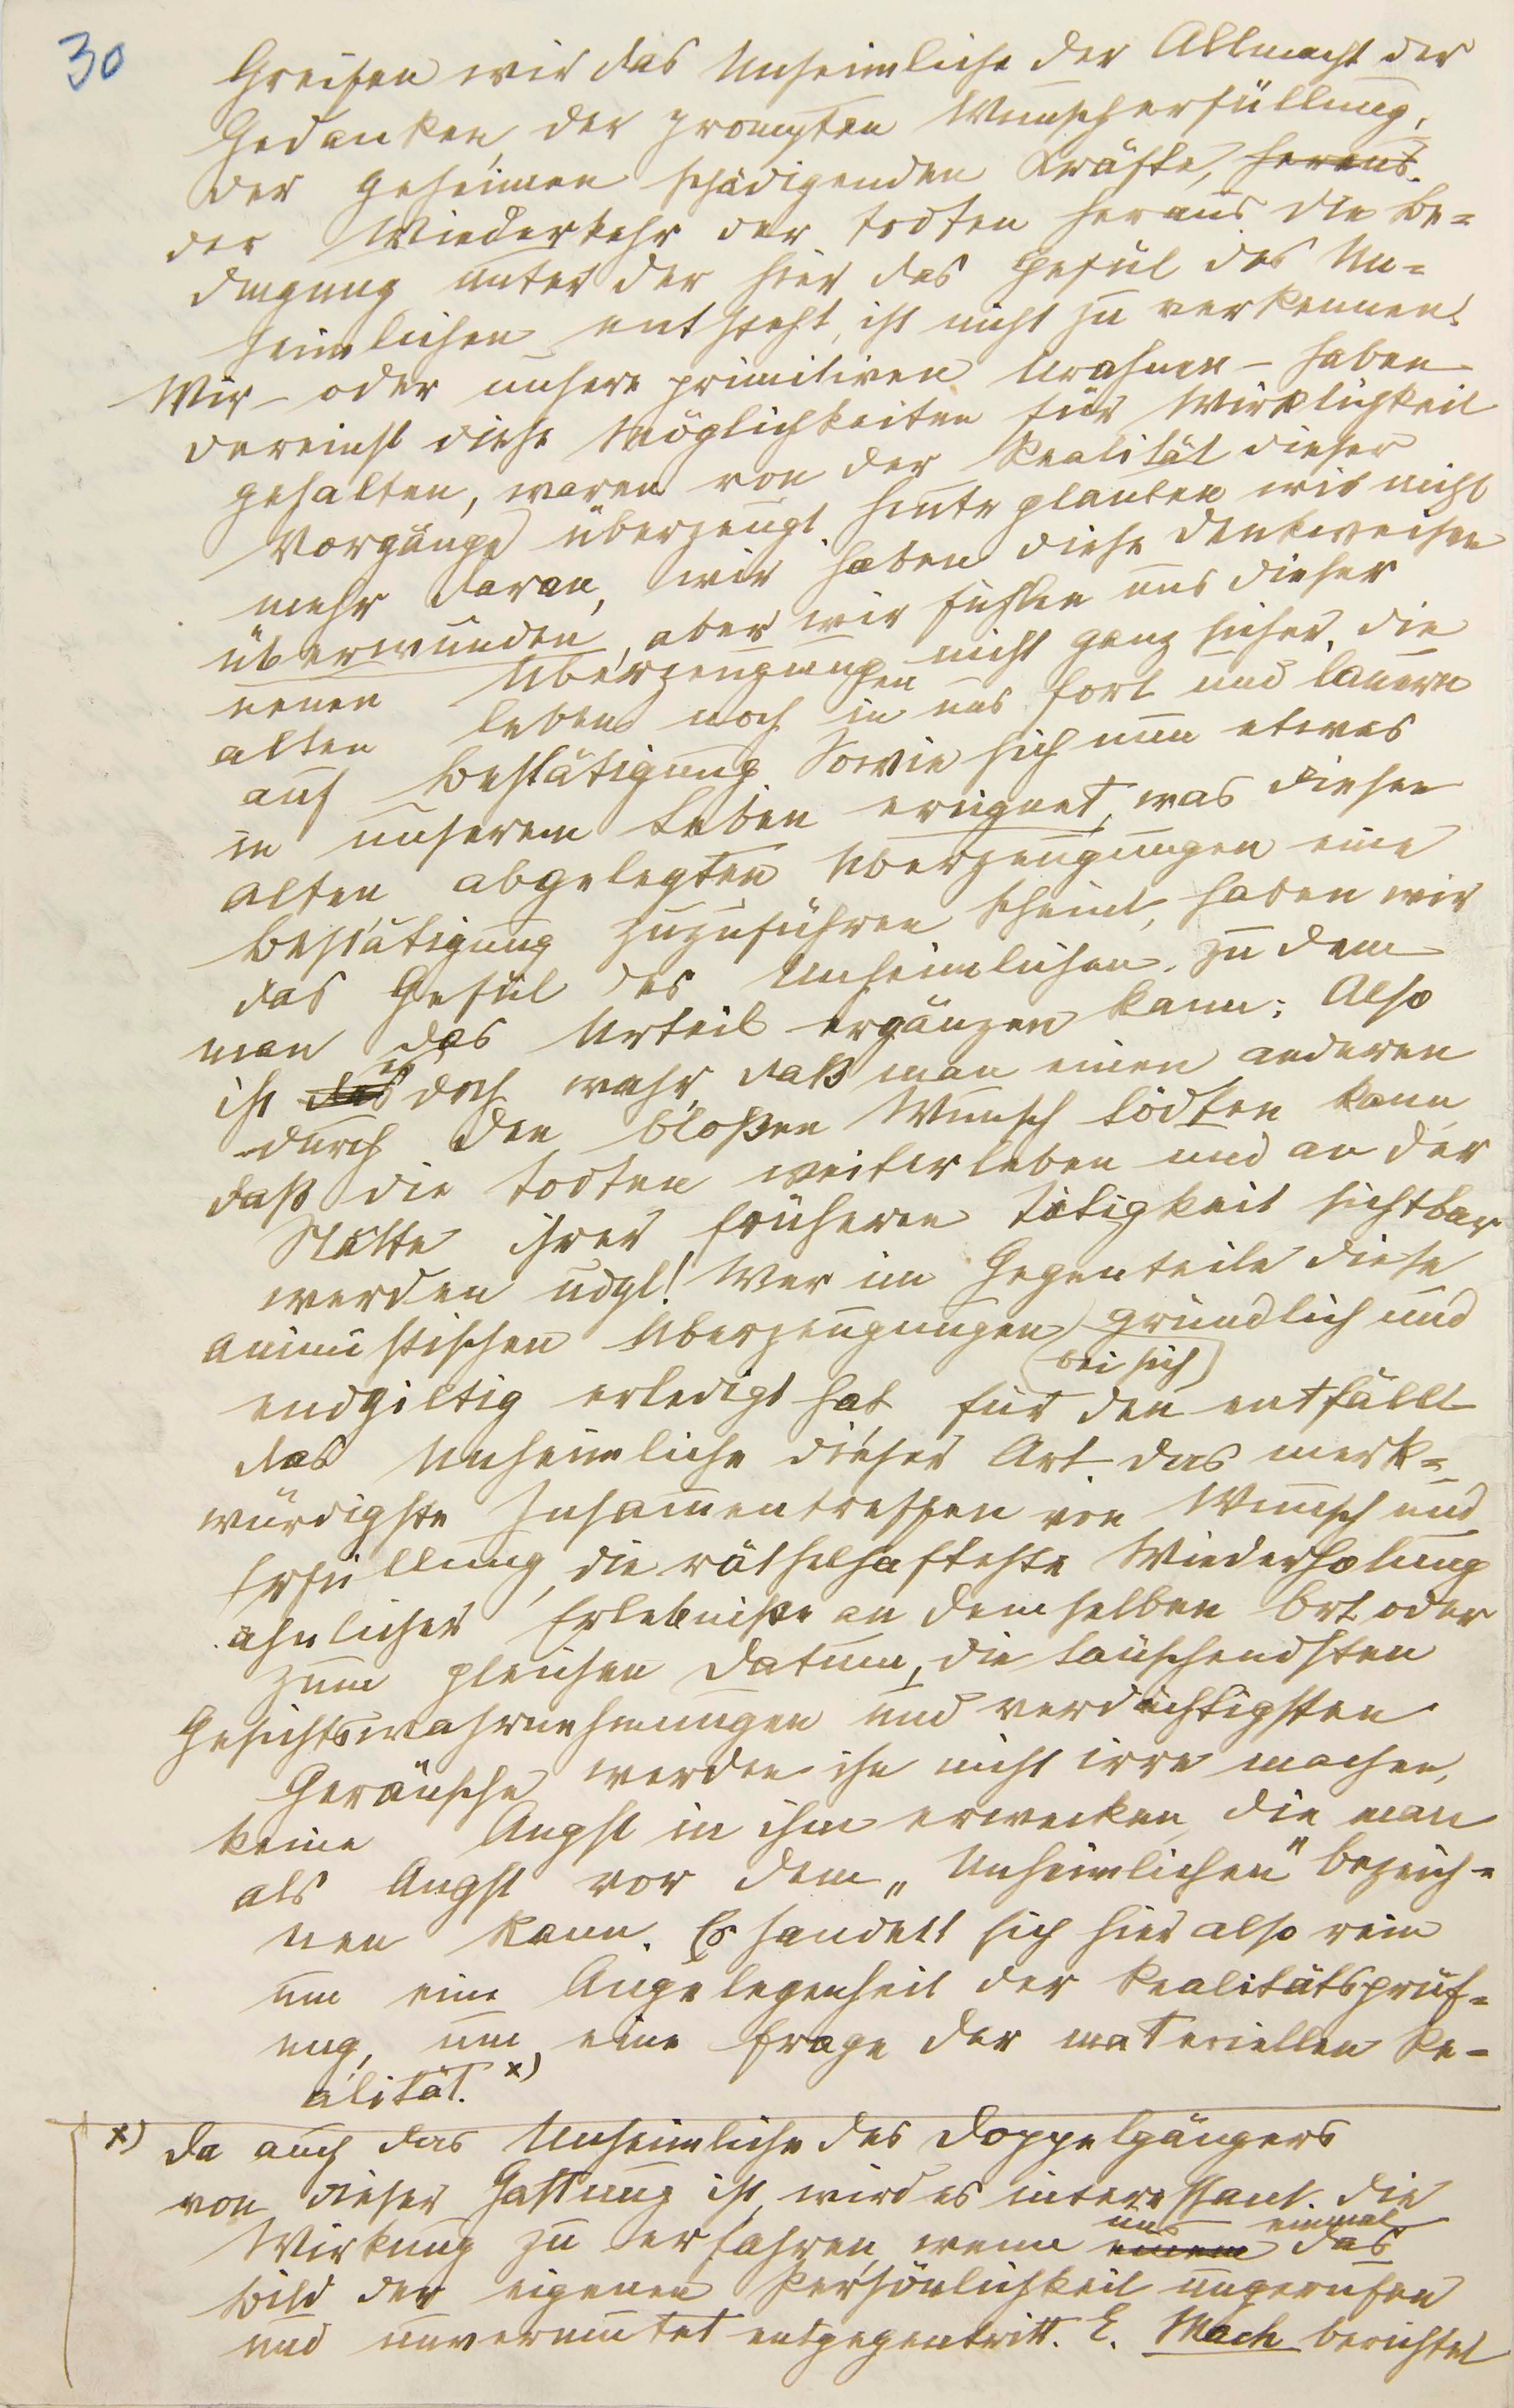 30
Greifen wir das Unheimliche der Allmacht der
Gedanken, der prompten Wunscherfüllung,
der geheimen schädigenden Kräfte, heraus.
der Wiederkehr der Todten heraus. Die Be=
dingung unter der hier das Gefül des Un=
heimlichen entsteht, ist nicht zu verkennen.
Wir – oder unsere primitiven Urahnen – haben
dereinst diese Möglichkeiten für Wirklichkeit
gehalten, waren von der Realität dieser
Vorgänge überzeugt. Heute glauben wir nicht
mehr daran, wir haben diese Denkweisen
überwunden, aber wir fühlen uns dieser
neuen Überzeugungen nicht ganz sicher, die
alten leben noch in uns fort und lauern
auf Bestätigung. Sowie sich nun etwas
in unserem Leben ereignet, was diesen
alten abgelegten Überzeugungen eine
Bestätigung zuzuführen scheint, haben wir
das Gefül des Unheimlichen, zu dem
man das Urteil ergänzen kann: Also
ist das es doch wahr, daß man einen anderen
durch den bloßen Wunsch tödten kann,
daß die Todten weiterleben und an der
Stätte ihrer früheren Tätigkeit sichtbar
werden udgl! Wer im Gegenteile diese
animistischen Überzeugungen bei sich gründlich und
endgiltig erledigt hat, für den entfällt
das Unheimliche dieser Art. Das merk=
würdigste Zusammentreffen von Wunsch und
Erfüllung, die räthselhafteste Wiederholung
ähnlicher Erlebniße an demselben Ort oder
zum gleichen Datum, die täuschendsten
Gesichtswahrnehmungen und verdächtigsten
Geräusche werden ihn nicht irre machen,
keine Angst in ihm erwecken, die man
als Angst vor dem „Unheimlichen" bezeich=
nen kann. Es handelt sich hier also rein
um eine Angelegenheit der Realitätsprüf=
ung, um eine Frage der materiellen Re=
alität. x)
x) Da auch das Unheimliche des Doppelgängers
von dieser Gattung ist, wird es interessant, die
Wirkung zu erfahren, wenn einem uns einmal das
Bild der eigenen Persönlichkeit ungerufen
und unvermutet entgegentritt. E. Mach berichtet